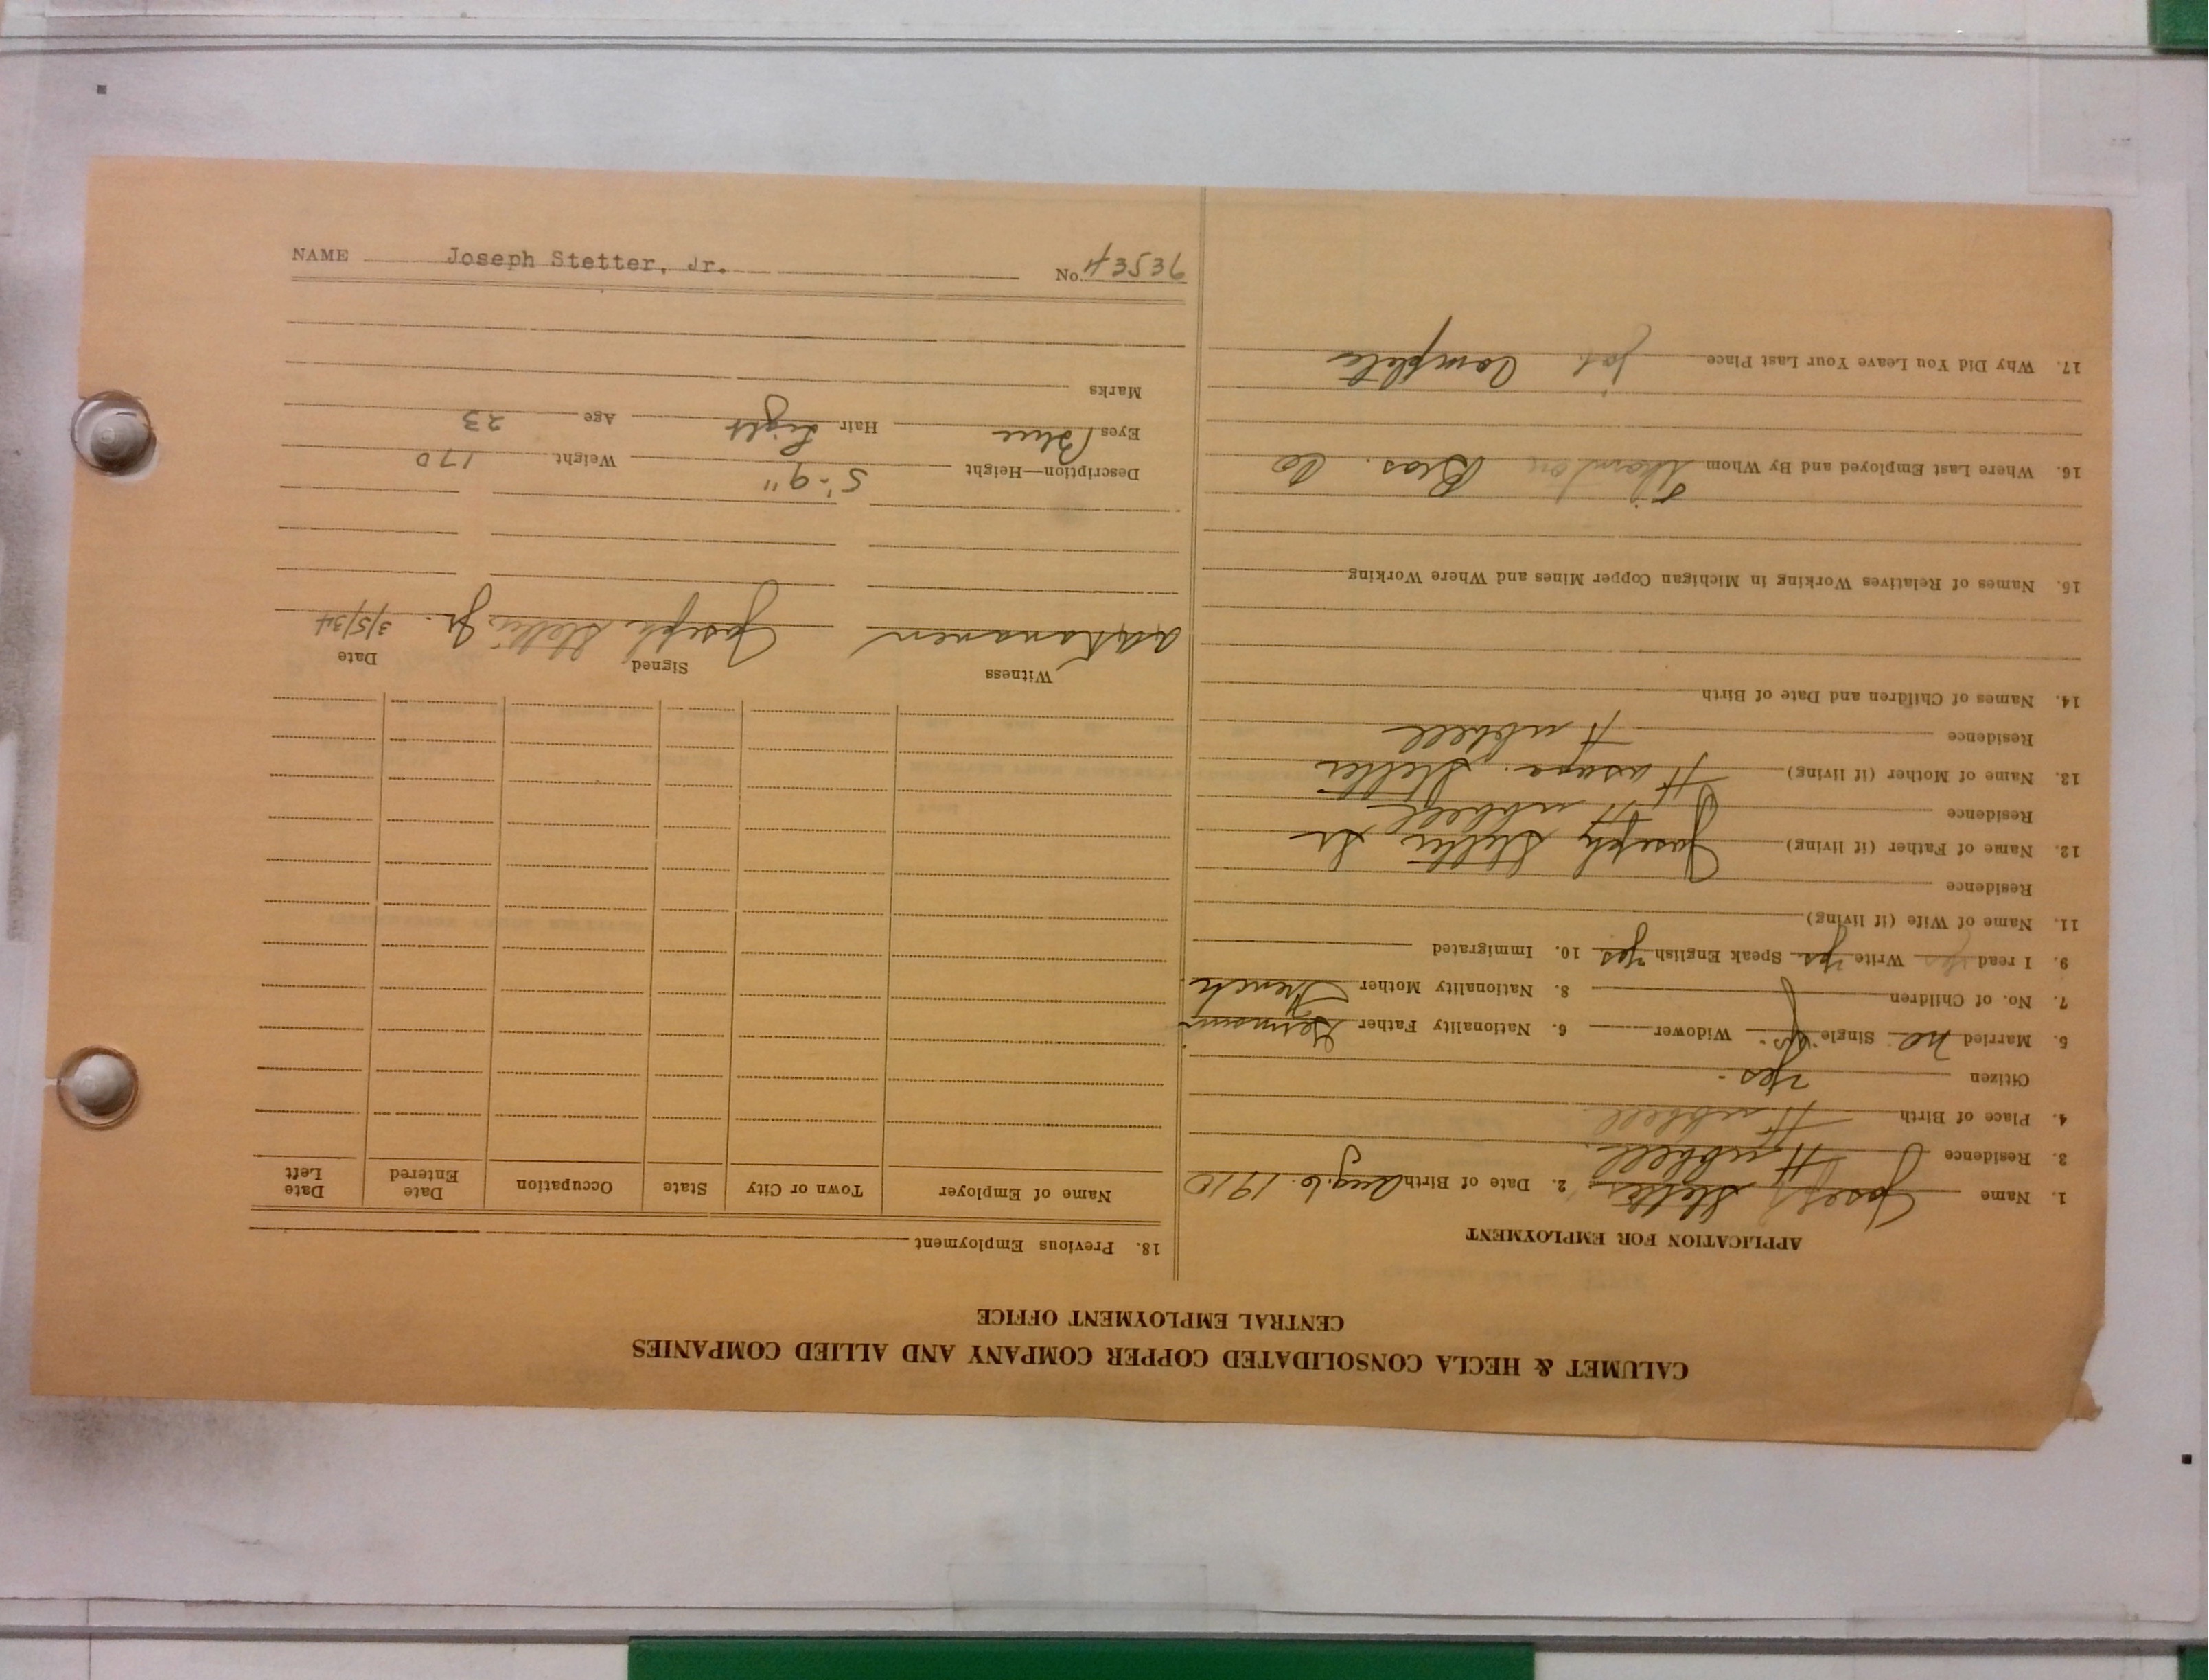 NAME Joseph Stetter, Jr. No. 43536
CALUMET & HECLA CONSOLIDATED COPPER COMPANY AND ALLIED COMPANIES
CENTRAL EMPLOYMENT OFFICE
APPLICATION FOR EMPLOYMENT
1. Name Joseph Stetter 2. Date of Birth Aug. 6. 1910
3. Residence Hubbell
4. Place of Birth Hubbell
Citizen Yes.
5. Married no Single yes. Widower 6. Nationality Father German
7. No. of Children 8. Nationality Mother French
9. I read yes Write yes Speak English yes 10. Immigrated
11. Name of Wife (if living)
Residence
12. Name of Father (if living) Joseph Stetter Sr
Residence Hubbell
13. Name of Mother (if living) Stetter
Residence Hubbell
14. Names of Children and Date of Birth
15. Names of Relatives Working in Michigan Copper Mines and Where Working
16. Where Last Employed and By Whom Thornton Bros. Co
17. Why Did You Leave Your Last Place job Complete
18. Previous Employment
Name of Employer Town or City State Occupation Date Entered Date Left
Witness Signed Date
Joseph Stetter Jr. 3/5/34
Description—Height 5'-9" Weight 170
Eyes Blue Hair Light Age 23
Marks